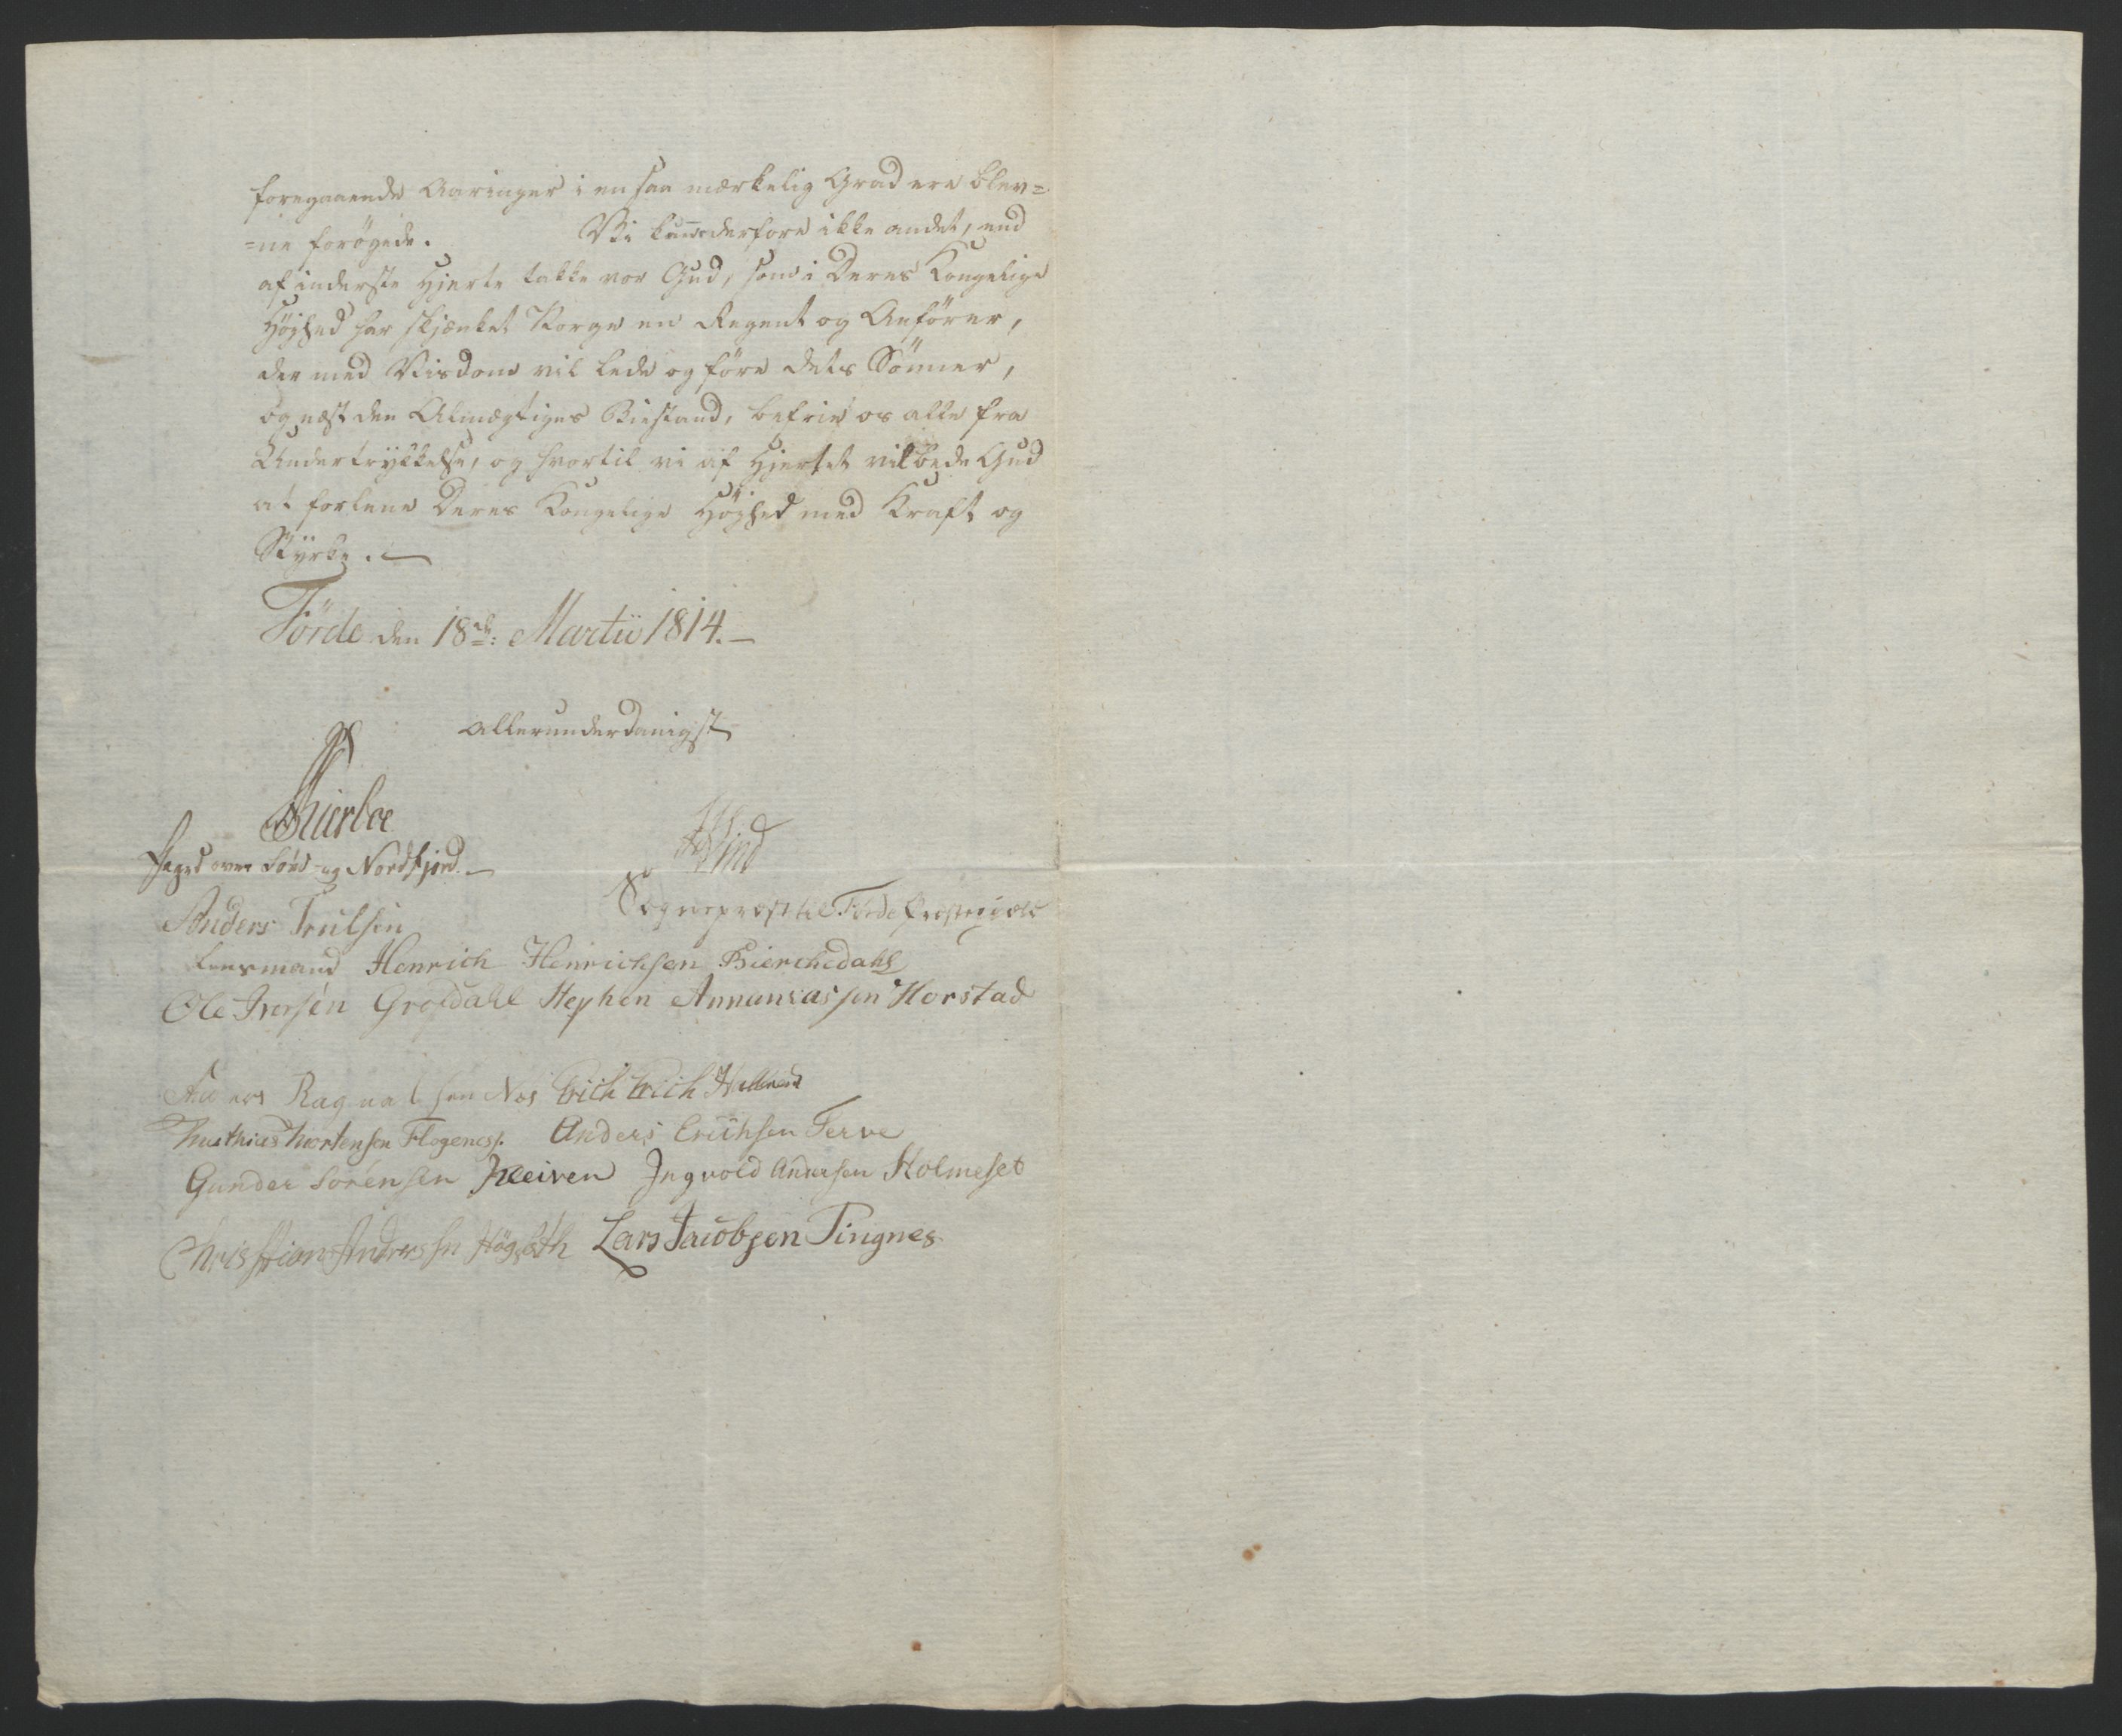 foregaaende Aaringer i en saa mærkelig Grad ere blev=
=ne forøgede. Vi kunde derfore ikke andet, end
af inderste Hjerte takke vor Gud, som i Deres Kongelige
Höyhed har skjænket Norge en Regent og Anförer,
der med Viisdom vil lede og före dets Sönner,
og næst den Almægtiges Biestand, befrie os alle fra
Undertrykkelse, og hvortil vi af Hjertet vil bede Gud
at forlene Deres Kongelige Höyhed med Kraft og
Styrke. —
Förde den 18de: Martii 1814. —
allerunderdanigst
Bierboe
Foged over Sönd- og Nordfjord. —
Wind
Sogneprest til Förde Prestegield
Anders Trulsen
Lensmand Henrich Henrichsen Bierchedahl
Ole Iversen Grofdahl Stephen Annaniassen Horstad
Anders Ragnalsen Nes Erich Erich
Mathias Mortensen Flogeness. Anders Erichsen Ferve
Gunder Sörensen Kleiven Ingvold Andersen Holmeset
Christian Anderssen Lars Jacobsen Tingnes